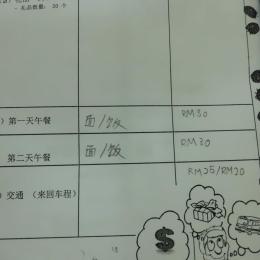 - 礼品数量: 20 个
) 第一天午餐 面/饭 RM30
第二天午餐 面/饭 RM30
) 交通 (来回车程) RM25/RM20
$